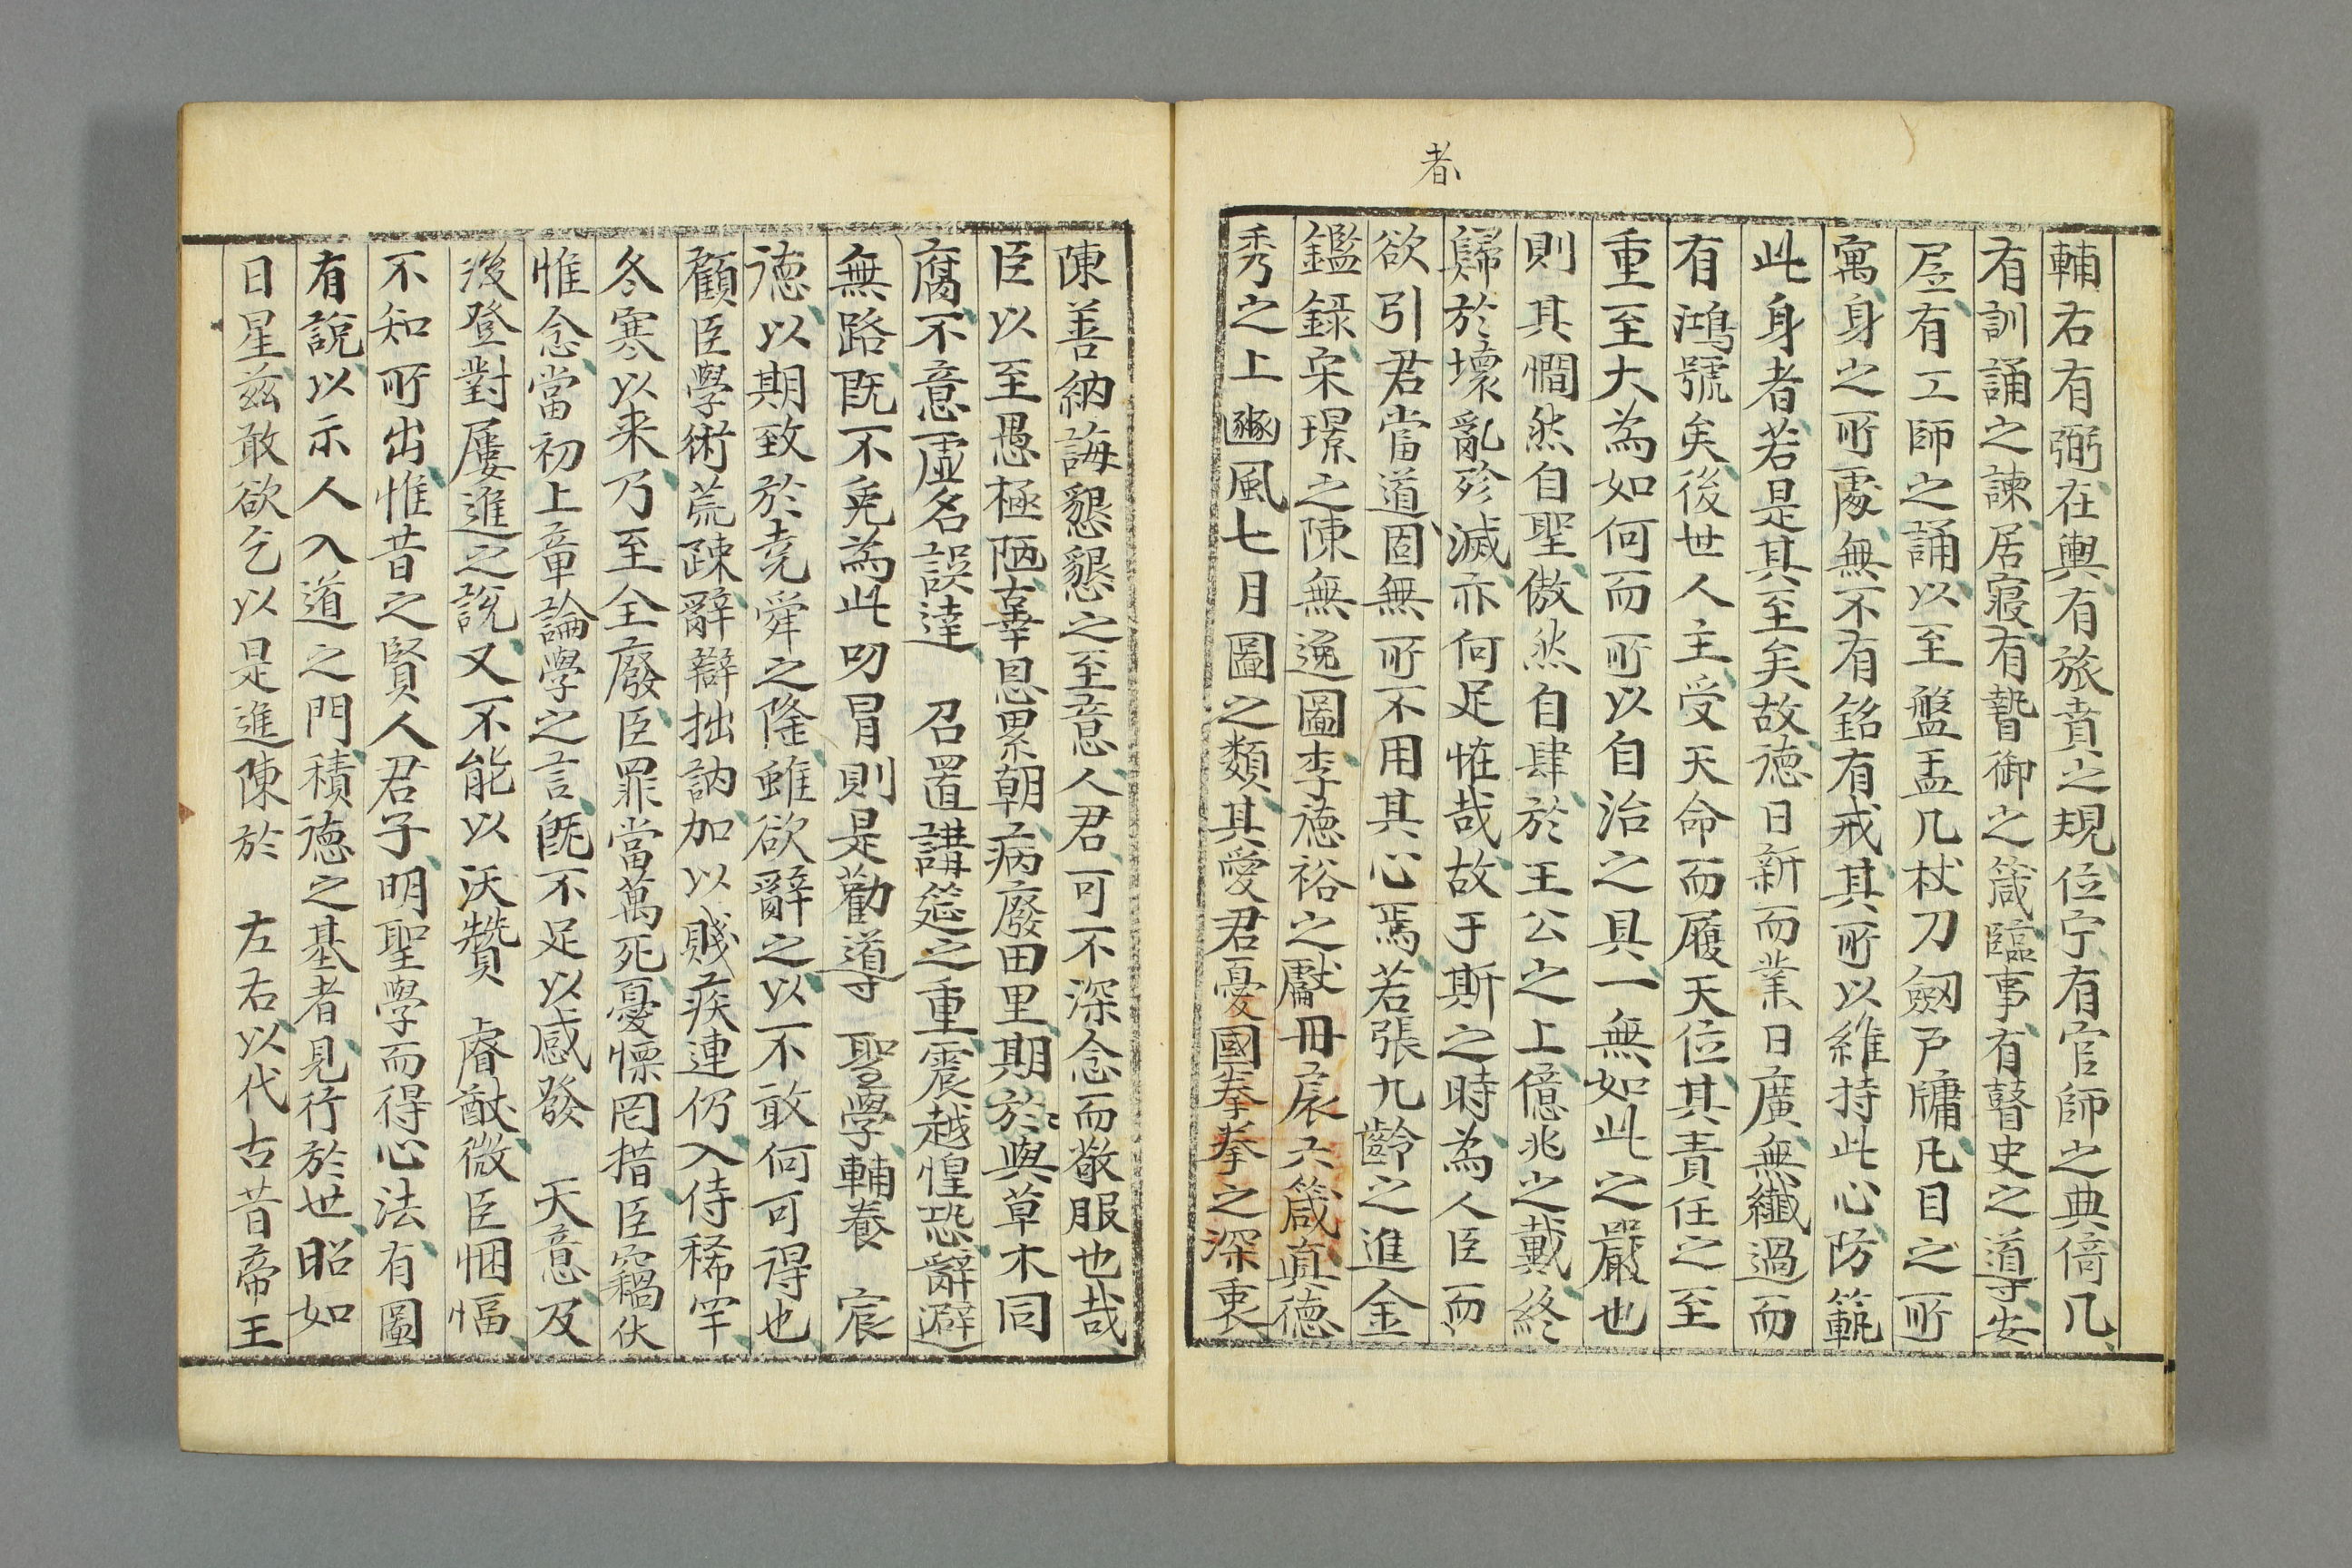 者
輔右有弼在輿有旅賁之規位宁有官師之典倚几
有訓誦之諫居寢有暬御之箴臨事有瞽史之導宴
居有工師之誦以至盤盂几杖刀劒戶牖凡目之所
寓身之所處無不有銘有戒其所以維持此心防範
此身者若是其至矣故德日新而業日廣無纖過而
有鴻號矣後世人主受天命而履天位其責任之至
重至大為如何而所以自治之具一無如此之嚴也
則其憪然自聖傲然自肆於王公之上億兆之戴終
歸於壞亂殄滅亦何足恠哉故于斯之時為人臣而
欲引君當道固無所不用其心焉若張九齡之進金
鑑錄宋璟之陳無逸圖李德裕之獻丹扆六箴真德
秀之上豳風七月圖之類其愛君憂國拳拳之深衷
陳善納誨懇懇之至意人君可不深念而敬服也哉
臣以至愚極陋辜恩累朝病廢田里期於與草木同
腐不意虛名誤達 召置講筵之重震越惶恐辭避
無路既不免為此叨冒則是勸導 聖學輔養 宸
德以期致於堯舜之隆雖欲辭之以不敢何可得也
顧臣學術荒疎辭辯拙訥加以賤疾連仍入侍稀罕
冬寒以来乃至全廢臣罪當萬死憂慄罔措臣竊伏
惟念當初上章論學之言既不足以感發 天意及
後登對屢進之說又不能以沃贊 睿猷微臣悃愊
不知所出惟昔之賢人君子明聖學而得心法有圖
有說以示人入道之門積德之基者見行於世昭如
日星茲敢欲乞以是進陳於 左右以代古昔帝王